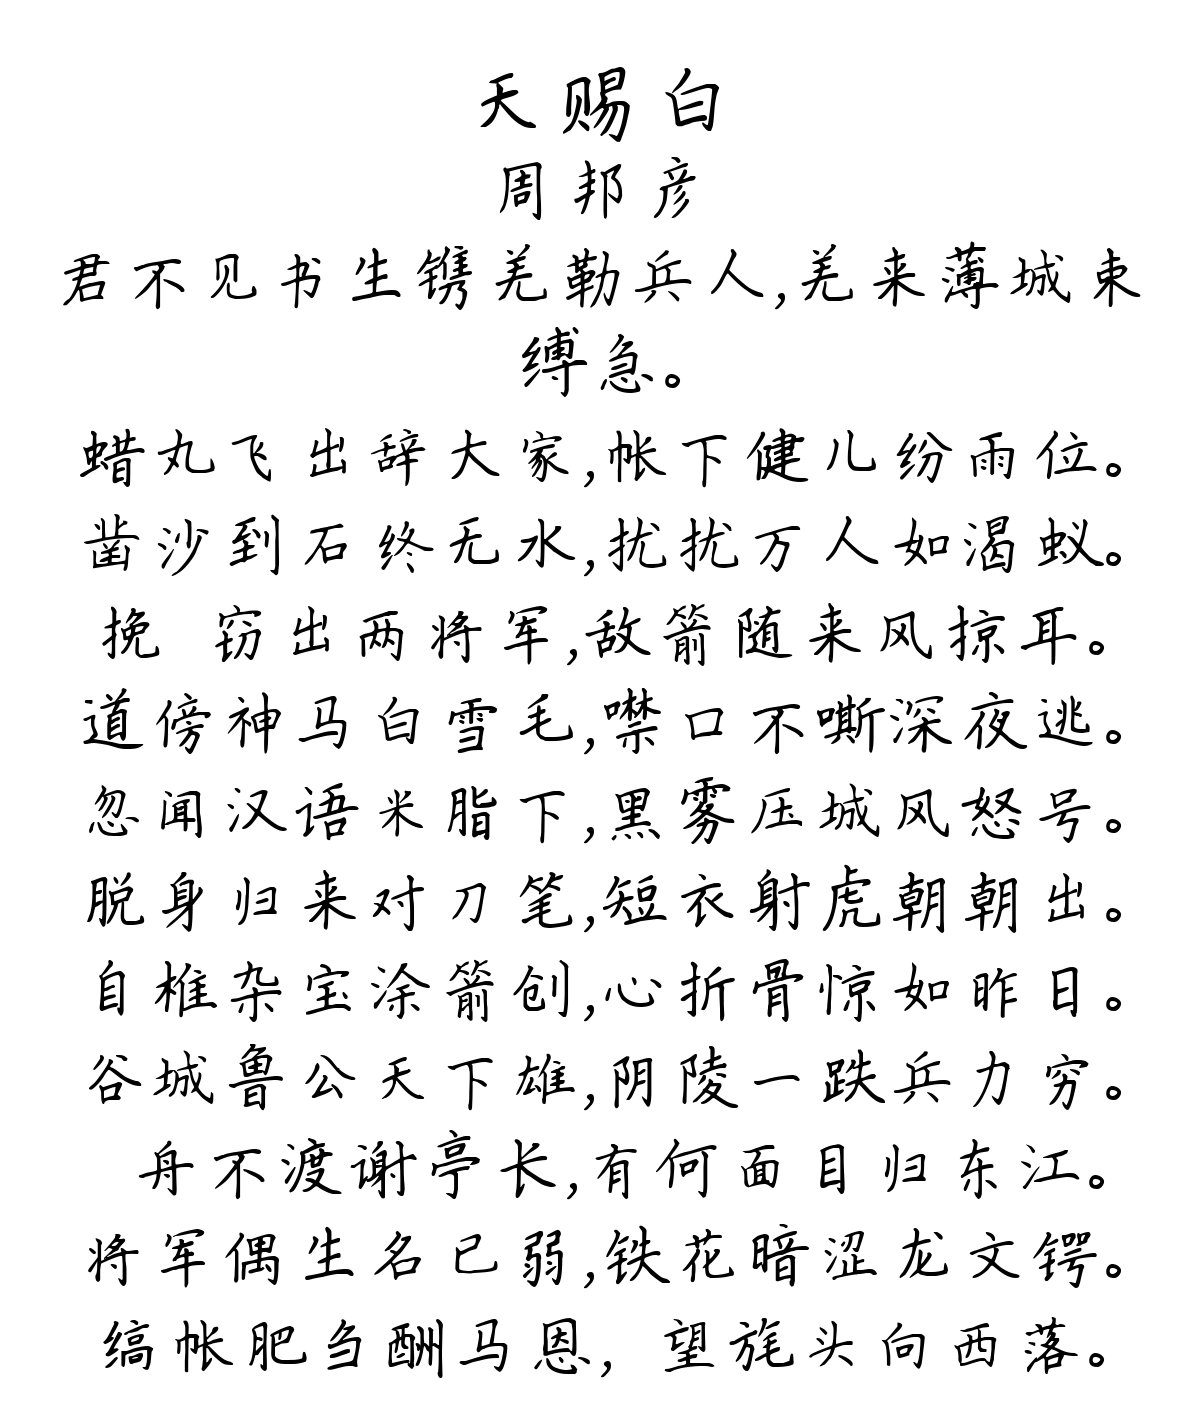 天赐白
周邦彦
君不见书生镌羌勒兵人,羌来薄城束
缚急。
蜡丸飞出辞大家,帐下健儿纷雨位。
凿沙到石终无水,扰扰万人如渴蚁。
挽 窃出两将军,敌箭随来风掠耳。
道傍神马白雪毛,噤口不嘶深夜逃。
忽闻汉语米脂下,黑雾压城风怒号。
脱身归来对刀笔,短衣射虎朝朝出。
自椎杂宝涂箭创,心折骨惊如昨日。
谷城鲁公天下雄,阴陵一跌兵力穷。
舟不渡谢亭长,有何面目归东江。
将军偶生名已弱,铁花暗涩龙文锷。
缟帐肥刍酬马恩, 望旄头向西落。